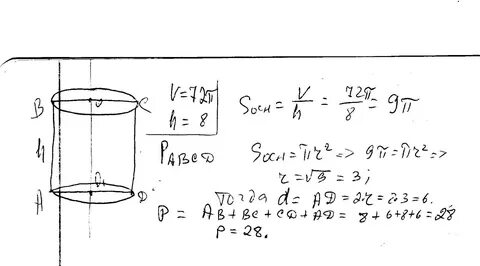 B O C
h
A O₁ D
V=72π
h = 8
P_ABCD
Sосн = V/h = 72π/8 = 9π
Sосн = πr² => 9π = πr² =>
r = √9 = 3;
Тогда d = AD = 2·r = 2·3 = 6.
P = AB + BC + CD + AD = 8 + 6 + 8 + 6 = 28
P = 28.